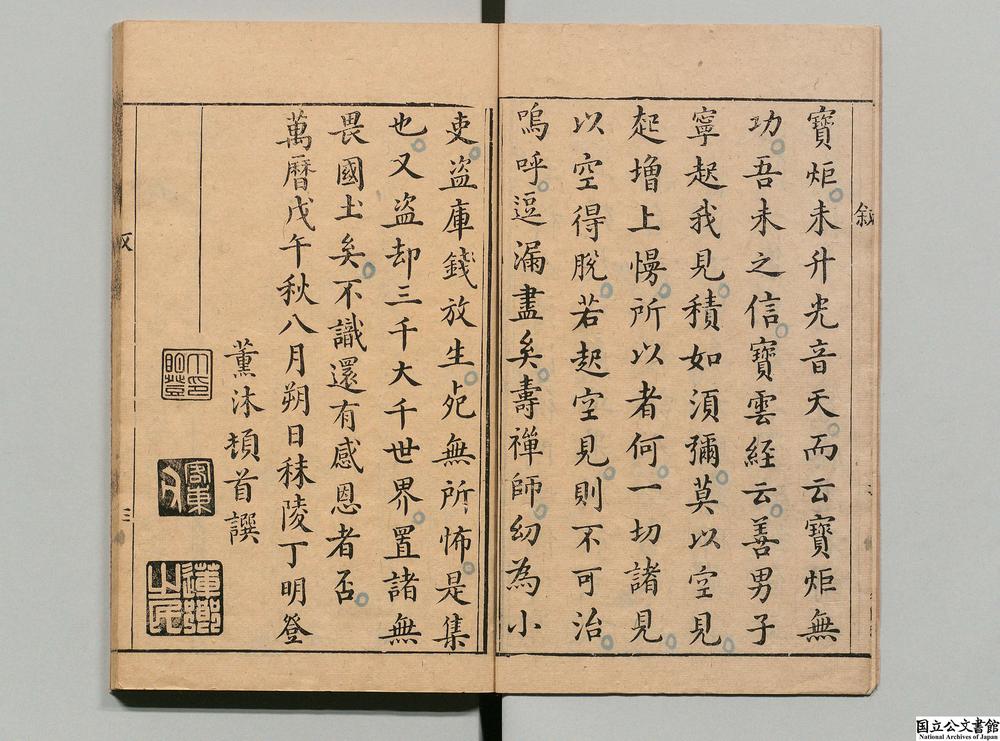 叙
寶炬未升光音天而云寶炬無
功吾未之信寶雲経云善男子
寧起我見積如湏彌莫以空見
起增上慢所以者何一切諸見
以空得脫若起空見則不可治
嗚呼逗漏盡矣壽禪師幼為小
吏盜庫錢放生死無所怖是集
也又盜却三千大千世界置諸無
畏國土矣不識還有感恩者否
萬曆戊午秋八月朔日秣陵丁明登
薰沐頓首譔
蓮鄉之民
三
国立公文書館
National Archives of Japan